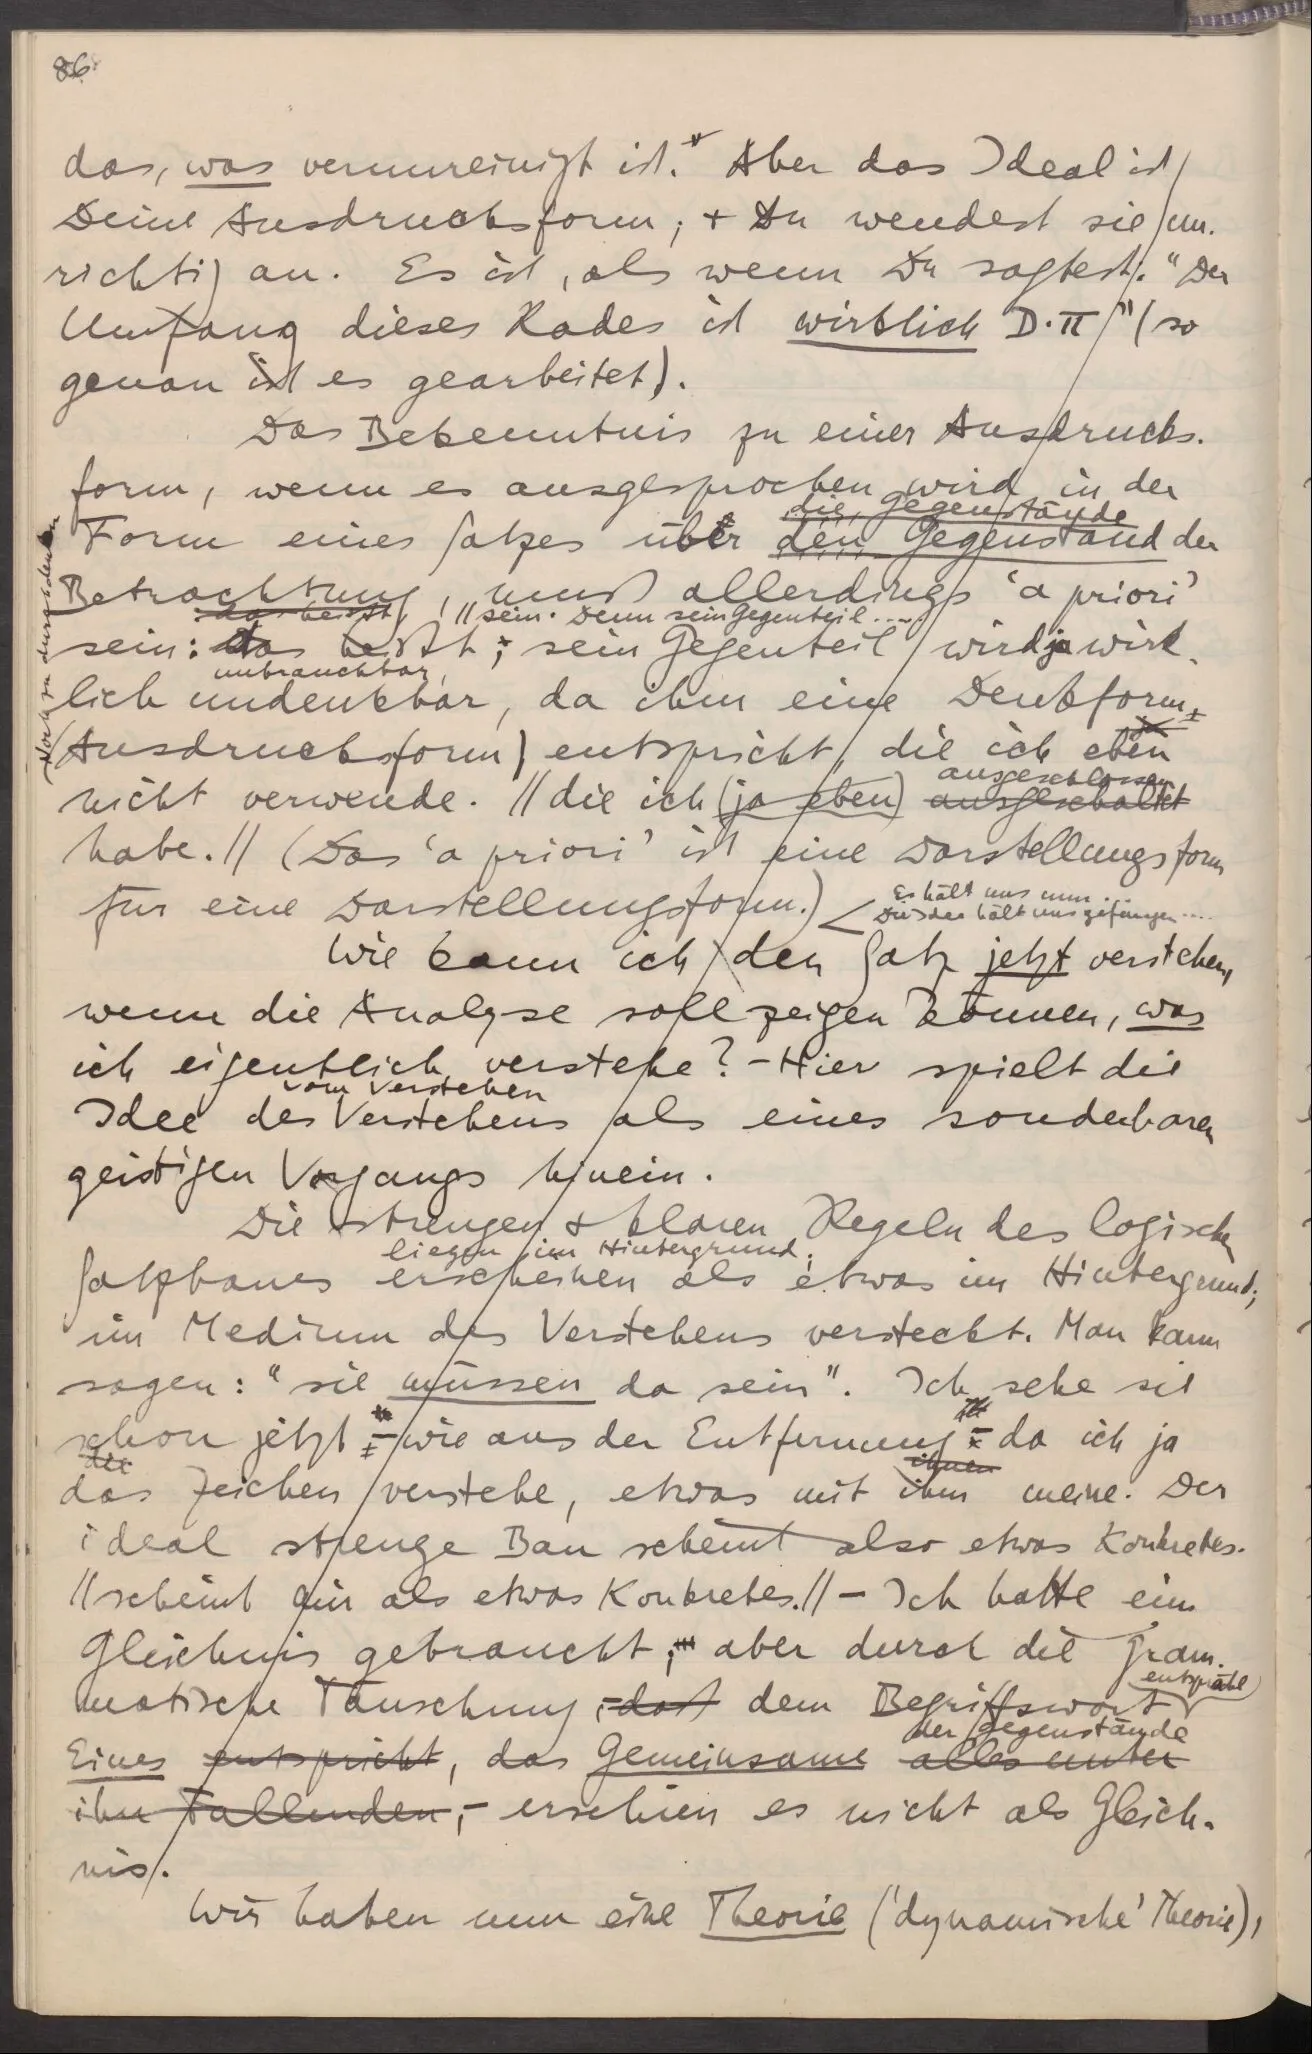 86
das, was verunreinigt ist. Aber das Ideal ist
Deine Ausdrucksform; + Du wendest sie un-
richtig an. Es ist, als wenn Du sagtest: "Der
Umfang dieses Rades ist wirklich D·π" (so
genau ist es gearbeitet).
Das Bekenntnis zu einer Ausdrucks-
form, wenn es ausgesprochen wird in der
die Gegenstände
Form eines Satzes über den Gegenstand der
Betrachtung, muß allerdings 'a priori'
das heißt, // sein. Denn sein Gegenteil ....
sein: das heißt; sein Gegenteil wird ja wirk-
unbrauchbar,
lich undenkbar, da ihm eine Denkform
(Ausdrucksform) entspricht, die ich eben
ausgeschlossen
nicht verwende. // die ich (ja eben) ausgeschaltet
habe. // (Das 'a priori' ist eine Darstellungsform
für eine Darstellungsform.) < Es hält uns nun ...
Die Idee hält uns gefangen ....
Wie kann ich den Satz jetzt verstehen,
wenn die Analyse soll zeigen können, was
ich eigentlich verstehe? – Hier spielt die
vom Verstehen
Idee des Verstehens als eines sonderbaren
geistigen Vorgangs hinein.
Die strengen + klaren Regeln des logischen
liegen im Hintergrund,
Satzbaues erscheinen als etwas im Hintergrund;
im Medium des Verstehens versteckt. Man kann
sagen: "sie müssen da sein". Ich sehe sie
schon jetzt – wie aus der Entfernung – da ich ja
die ihnen
das Zeichen verstehe, etwas mit ihm meine. Der
ideal strenge Bau scheint also etwas Konkretes.
// scheint mir als etwas Konkretes. // – Ich hatte ein
Gleichnis gebraucht; aber durch die gram-
entspräche
matische Täuschung, – daß dem Begriffswort
der Gegenstände
Eines entspricht, das Gemeinsame alles unter
ihn Fallenden, – erschien es nicht als Gleich-
nis.
Wir haben nun eine Theorie ('dynamische' Theorie),